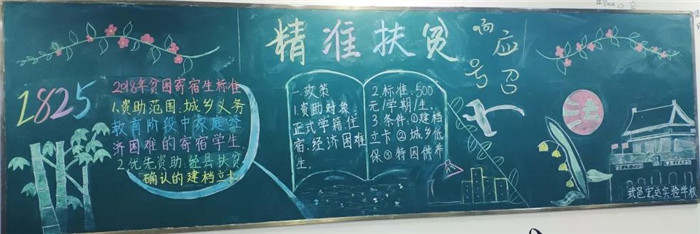 精准扶贫
响应召号
1825
2018年贫困寄宿生标准
1.资助范围:城乡义务
教育阶段中家庭经
济困难的寄宿学生.
2.优先资助经县扶贫
确认的建档立卡
1.政策
1.资助对象
正式学籍住
宿.经济困难
生.
2.标准:500
元/学期/生.
3.条件:①建档
立卡②城乡低
保③特困供养
武邑宏达实验学校